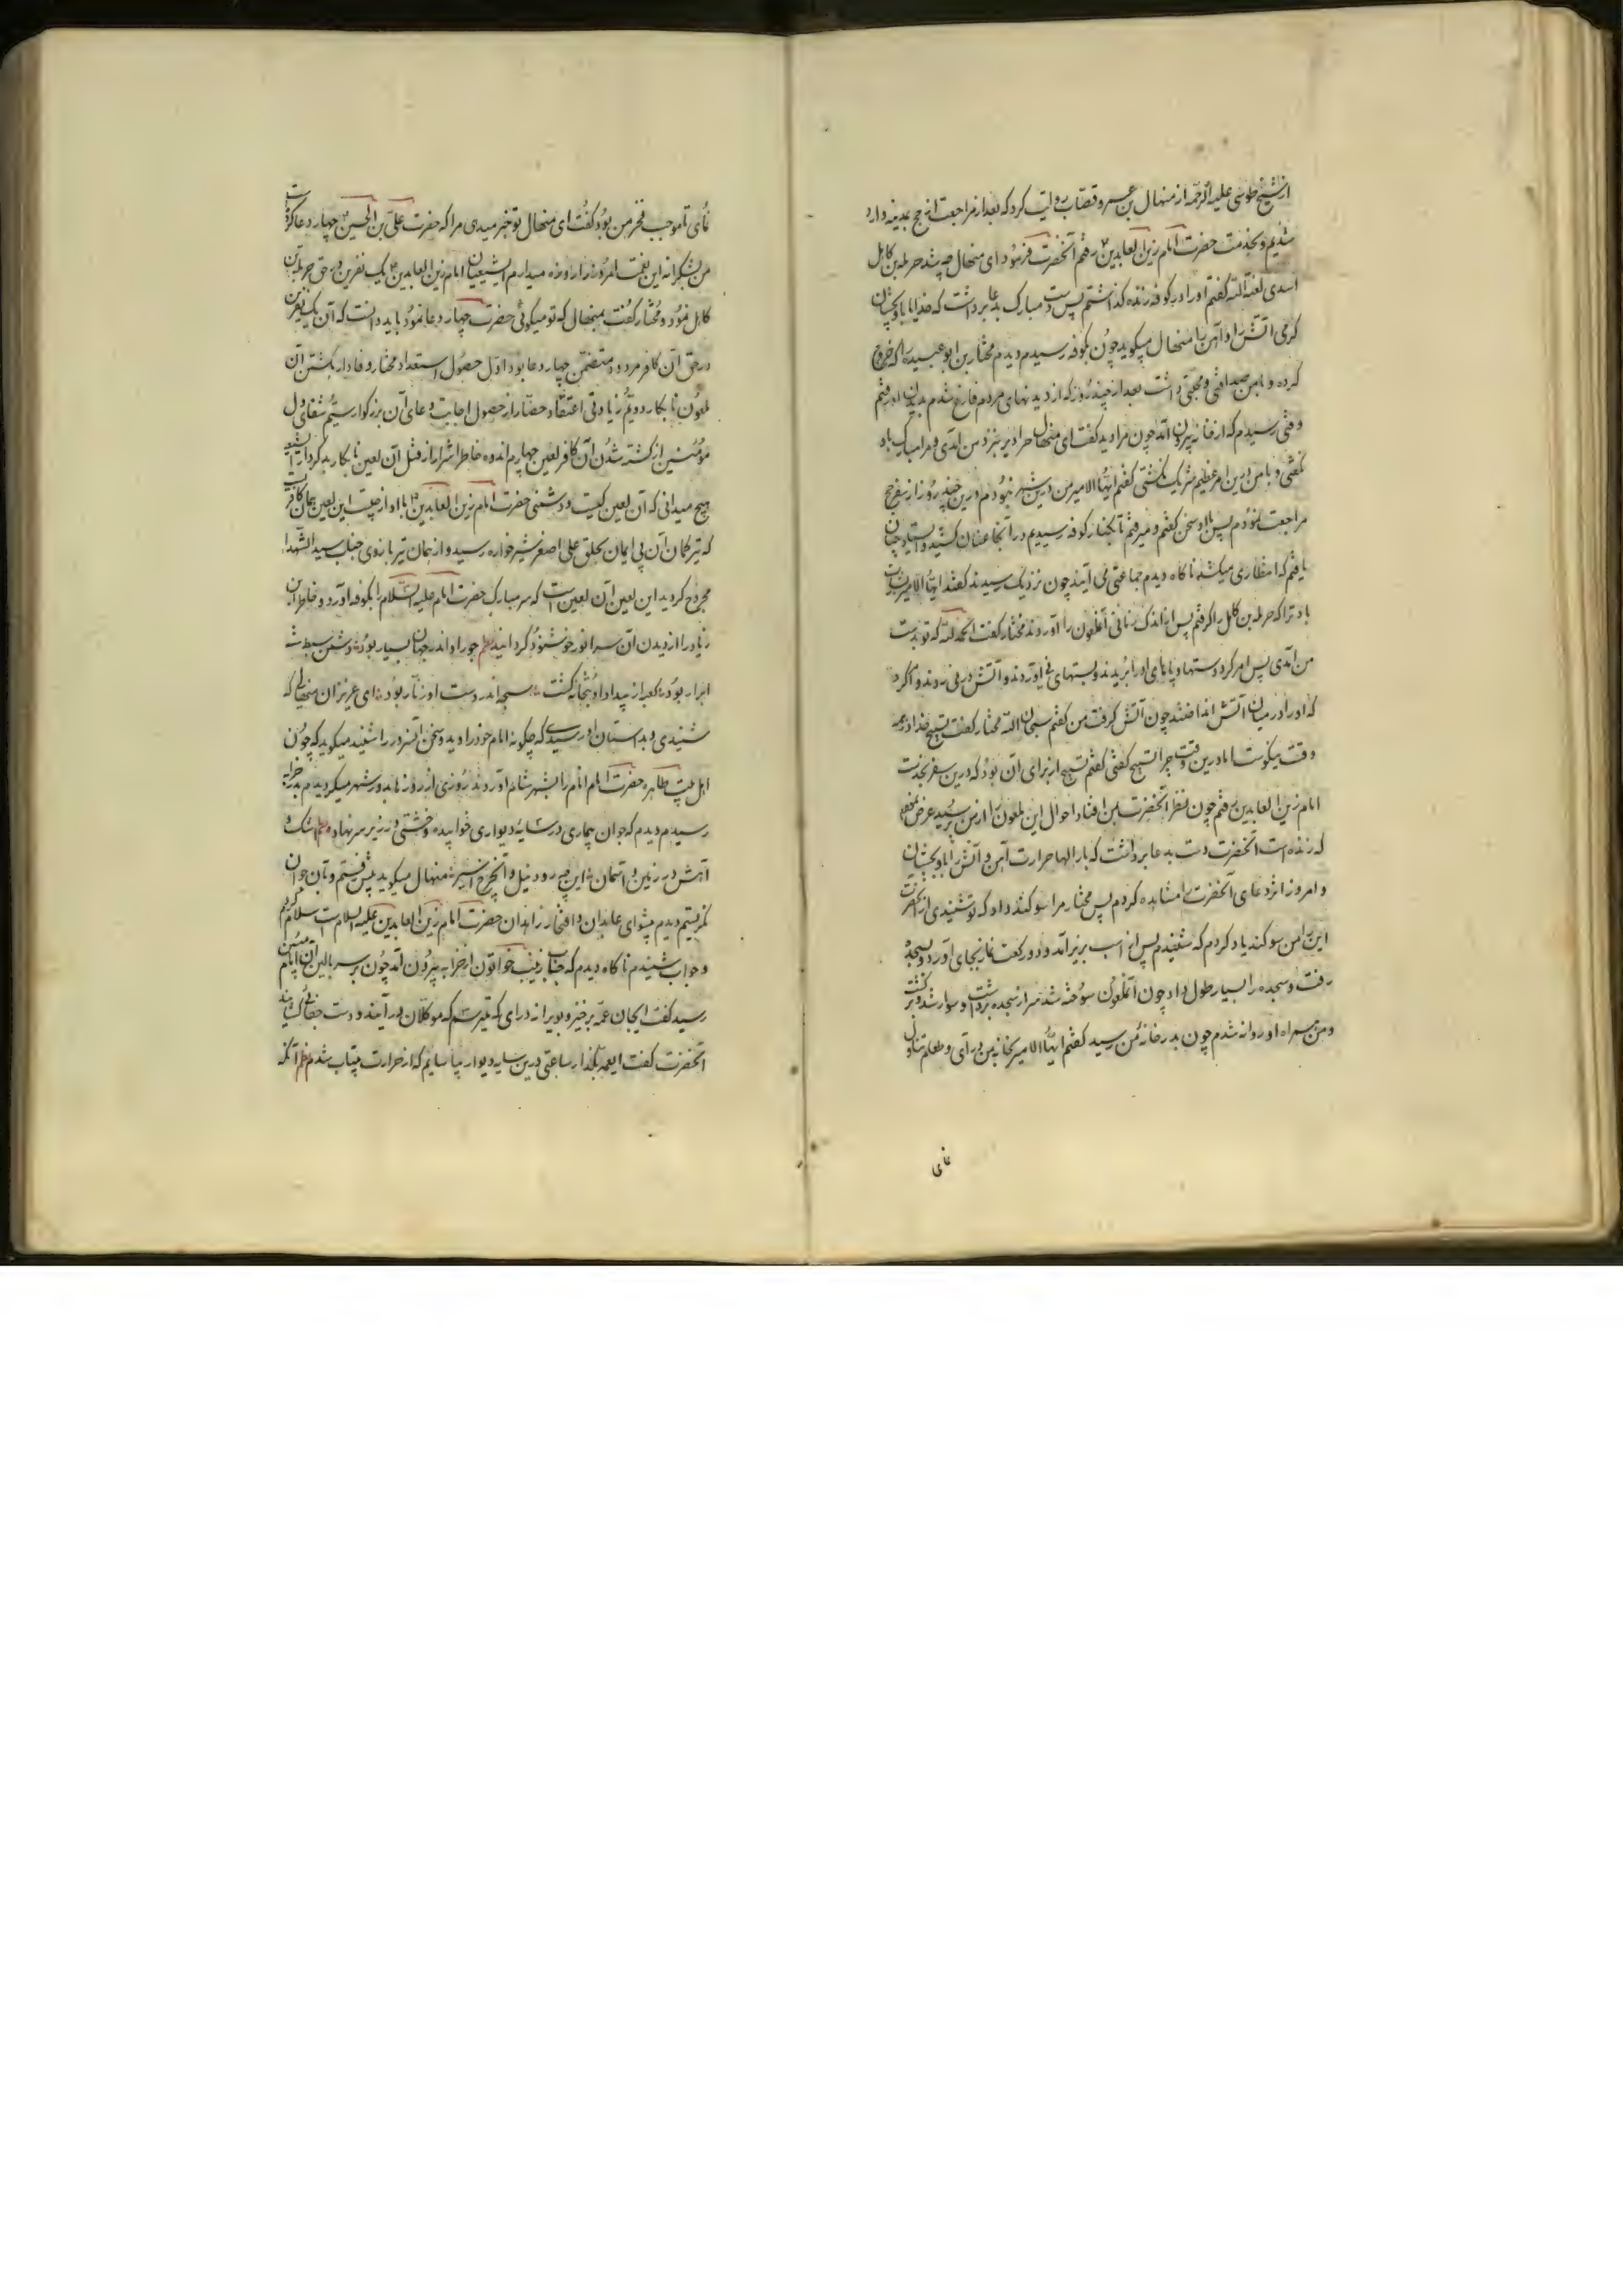 از شیخ طوسی علیه الرحمه از منهال بن عمرو قصاب روایت کرد که بعد از مراجعت از حج بمدینه وارد
شدیم و بخدمت حضرت امام زین العابدین رفتم آنحضرت فرمود ای منهال چه شد حرمله بن کاهل
اسدی لعنة الله گفتم او را در کوفه زنده گذاشتم پس دست مبارک بدعا برداشت که خدایا باو بچشان
گرمی آتش را و آهن را منهال میگوید چون بکوفه رسیدم دیدم مختار بن ابو عبیده را که خروج
کرده و با من صداقتی و محبتی داشت بعد از چند روز که از دیدنهای مردم فارغ شدم بدیدن او رفتم
وقتی رسیدم که از خانه بیرون آمد چون مرا دید گفت ای منهال چرا دیر بنزد من آمدی و مرا مبارک باد
نگفتی و با من درین امر عظیم شریک نگشتی گفتم ایها الامیر من درین شهر نبودم درین چند روز از سفر حج
مراجعت نمودم پس با او سخن گفتم و میرفتم تا بکنار کوفه رسیدیم در آنجا عنان کشید و بایستاد چنان
یافتم که انتظاری میکشد ناگاه دیدم جماعتی می آیند چون نزدیک رسیدند گفتند ایها الامیر بشارت
باد ترا که حرمله بن کاهل را گرفتم پس از اندک زمانی آنملعون را آوردند مختار گفت الحمد لله که تو بدست
من آمدی پس امر کرد دستها و پاهای او را بریدند و بستهای نی آوردند و آتش در نی زدند و امر کرد
که او را در میان آتش انداختند چون آتش گرفت من گفتم سبحان الله مختار گفت تسبیح خدا در همه
وقت نیکوست اما درین وقت چرا تسبیح گفتی گفتم تسبیح از برای آن بود که درین سفر بخدمت
امام زین العابدین رفتم چون نظر آنحضرت بمن افتاد احوال این ملعون را از من پرسید عرض نمودم
که زنده است آنحضرت دست بدعا برداشت که بار الها حرارت آهن و آتش را باو بچشان
و امروز اثر دعای آنحضرت را مشاهده کردم پس مختار مرا سوگند داد که تو شنیدی از آنحضرت
این را من سوگند یاد کردم که شنیدم پس از اسب بزیر آمد و دو رکعت نماز بجای آورد و بسجده
رفت و سجده را بسیار طول داد چون آنملعون سوخته شد سر از سجده برداشت و سوار شد و برگشت
و من همراه او روانه شدم چون بدر خانه من رسید گفتم ایها الامیر بخانه من در آی و طعام تناول
نمای
نمای تا موجب فخر من بود گفت ای منهال تو خبر میدی مرا که حضرت علی بن الحسین چهار دعا کرده است
من بشکرانه این نعمت امروز را روزه میدارم ای شیعیان امام زین العابدین یک نفرین در حق حرمله بن
کاهل نمود و مختار گفت بمنهال که تو میگوئی حضرت چهار دعا نمود باید دانست که آن یک نفرین
در حق آن کافر مردود متضمن چهار دعا بود اول حصول استعداد مختار وفادار بکشتن آن
ملعون نابکار دویم زیادتی اعتقاد حضار از حصول اجابت دعای آن بزرگوار سیم شفای دل
مؤمنین از کشته شدن آن کافر لعین چهارم اندوه خاطر اشرار از قتل آن لعین نابکار بد کردار ای شیعه
هیچ میدانی که آن لعین کیست و دشمنی حضرت امام زین العابدین با او از چیست این لعین همان کافر است
که تیر کمان آن بی ایمان بحلق علی اصغر شیرخواره رسید و از همان تیر بازوی جناب سید الشهدا
مجروح گردید این لعین آن لعین است که سر مبارک حضرت امام علیه السلام را بکوفه آورد و خاطر ابن
زیاد را از دیدن آن سر انور خوشنود گردانید نظم جور او اندر جهان بسیار بود دشمن سبط شه
ابرار بود کعبه از بیداد او بتخانه گشت سبحه اندر دست او زنار بود ای عزیزان منهال را که
شنیدی و بداستان او رسیدی که چگونه امام خود را دید و سخن آنسرور را شنید میگوید که چون
اهل بیت طاهره حضرت امام انام را بشهر شام آوردند روزی از روزها بدور شهر میگردیدم بدر خرابه
رسیدم دیدم که جوان بیماری در سایه دیواری خوابیده و خشتی در زیر سر نهاده نظم اشک و
آهش در زمین و آسمان این چه رود نیل و آنچرخ اثیر منهال میگوید پیش رفتم و بآن جوان
نگریستم دیدم پیشوای عابدان و افتخار زاهدان حضرت امام زین العابدین علیه السلامست سلام کردم
و جواب شنیدم ناگاه دیدم که جناب زینب خواتون از خرابه بیرون آمد چون بر سر بالین آن امام مبین
رسید گفت ایجان عمه برخیز و بویرانه در آی که میترسم که موکلان در آیند و دست جفا بگشایند
آنحضرت گفت ایعمه بگذار ساعتی درین سایه دیوار بیاسایم که از حرارت بیتاب شدم نظم آنکه